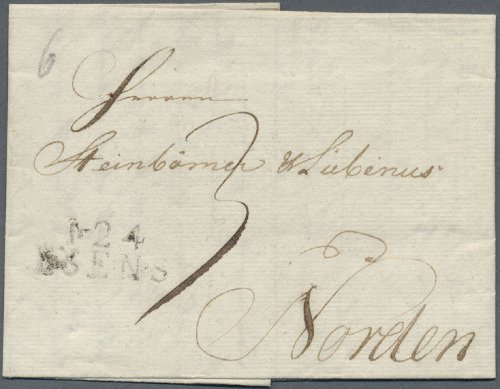 6
Herren
Steinbömer & Lübinus
3
124
ESENS
Norden